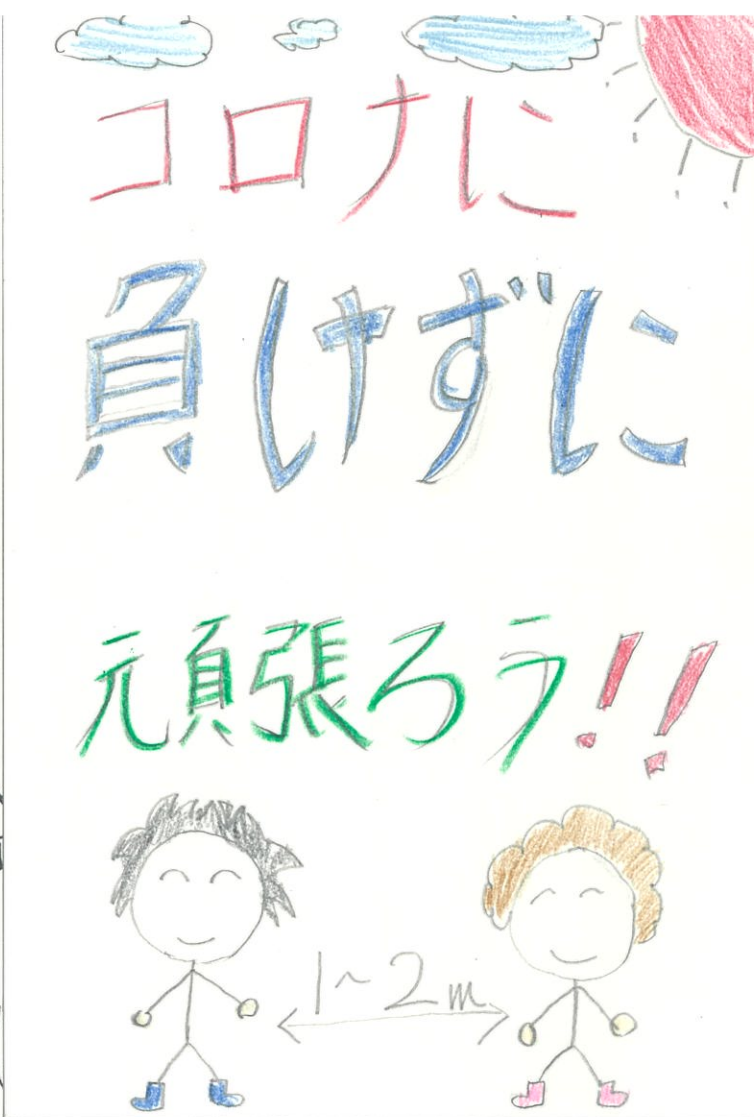 コロナに
負けずに
頑張ろう!!
1~2m